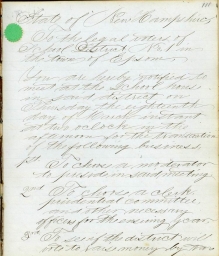 State of New Hampshire
To the legal voters of
School District No 1 in
the town of Epsom
You are hereby notified to
meet at the School house
in said district on
day the eighteenth
day of March instant
at six o'clock in the
afternoon for the transaction
of the following business
1st To chose a moderator
to preside in said meeting
2nd To chose a clerk
prudential committee
and other necessary
officers for the ensuing year
3rd To see if the district will
vote to raise money by